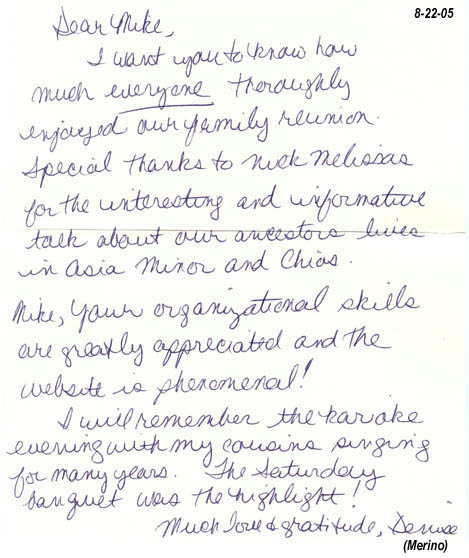 8-22-05
Dear Mike,
I want you to know how
much everyone thoroughly
enjoyed our family reunion.
Special thanks to Nick Melissas
for the interesting and informative
talk about our ancestors lives
in Asia Minor and Chios.
Mike, your organizational skills
are greatly appreciated and the
website is phenomenal!
I will remember the karaoke
evening with my cousins singing
for many years. The Saturday
banquet was the highlight!
Much love & gratitude, Denise
(Merino)